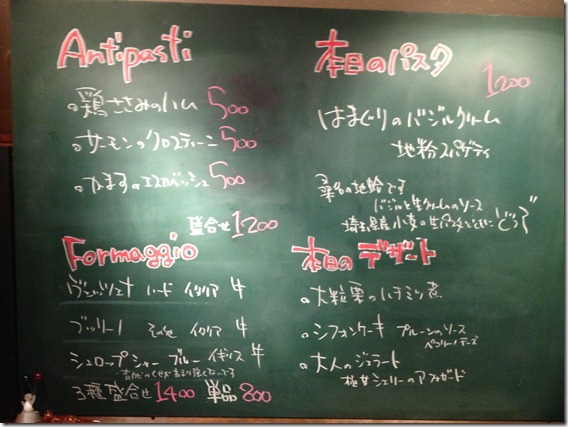 Antipasti
。鶏ささみのハム 500
。サーモンのクロスティーニ 500
。かますのエスカベッシュ 500
盛合せ 1200
Formaggio
ハード イタリア 牛
ブッリーノ その他 イタリア 牛
シュロップシャー ブルー イギリス 牛
3種盛合せ 1400 単品 800
本日のパスタ
1200
はまぐりのバジルクリーム
地粉スパゲティ
桑名の地蛤です
バジルと生クリームのソース
埼玉県産小麦の生パスタとともにどうぞ
本日のデザート
。大粒栗のハチミツ煮
。シフォンケーキ プルーンのソース
。大人のジェラート
極甘シェリーのアフォガード